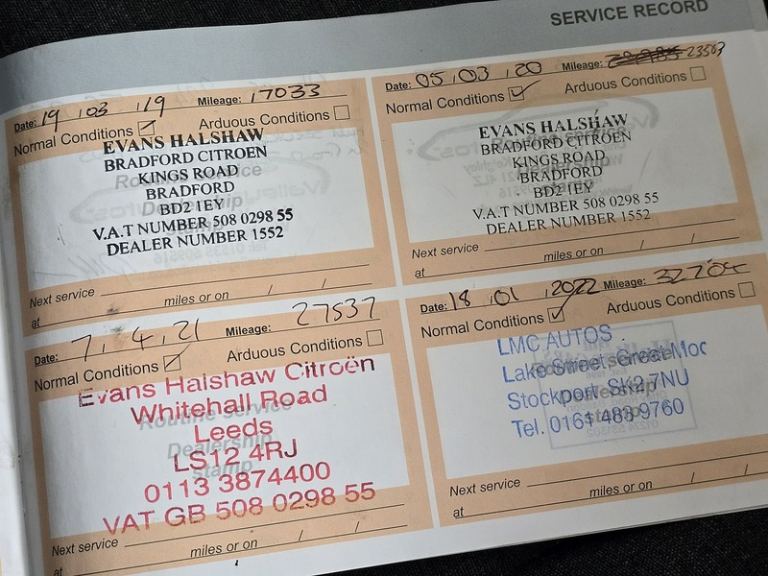 SERVICE RECORD
Date: 19 / 03 / 19 Mileage: 17033
Normal Conditions ✓ Arduous Conditions
EVANS HALSHAW
BRADFORD CITROEN
KINGS ROAD
BRADFORD
BD2 1EY
V.A.T NUMBER 508 0298 55
DEALER NUMBER 1552
Routine Service
Dealership
Next service
miles or on / /
at
Date: 05 / 03 / 20 Mileage: 23563
Normal Conditions ✓ Arduous Conditions
EVANS HALSHAW
BRADFORD CITROEN
KINGS ROAD
BRADFORD
BD2 1EY
V.A.T NUMBER 508 0298 55
DEALER NUMBER 1552
Next service
miles or on / /
at
Date: 7 / 4 / 21 Mileage: 27537
Normal Conditions ✓ Arduous Conditions
Evans Halshaw Citroën
Whitehall Road
Leeds
LS12 4RJ
0113 3874400
VAT GB 508 0298 55
Routine Service
Dealership
stamp
Next service
miles or on / /
at
Date: 18 / 01 / 2022 Mileage:
Normal Conditions ✓ Arduous Conditions
LMC AUTOS
Lake Street, Great Moo
Stockport SK2 7NU
Tel. 0161 483 9760
Next service
miles or on / /
at